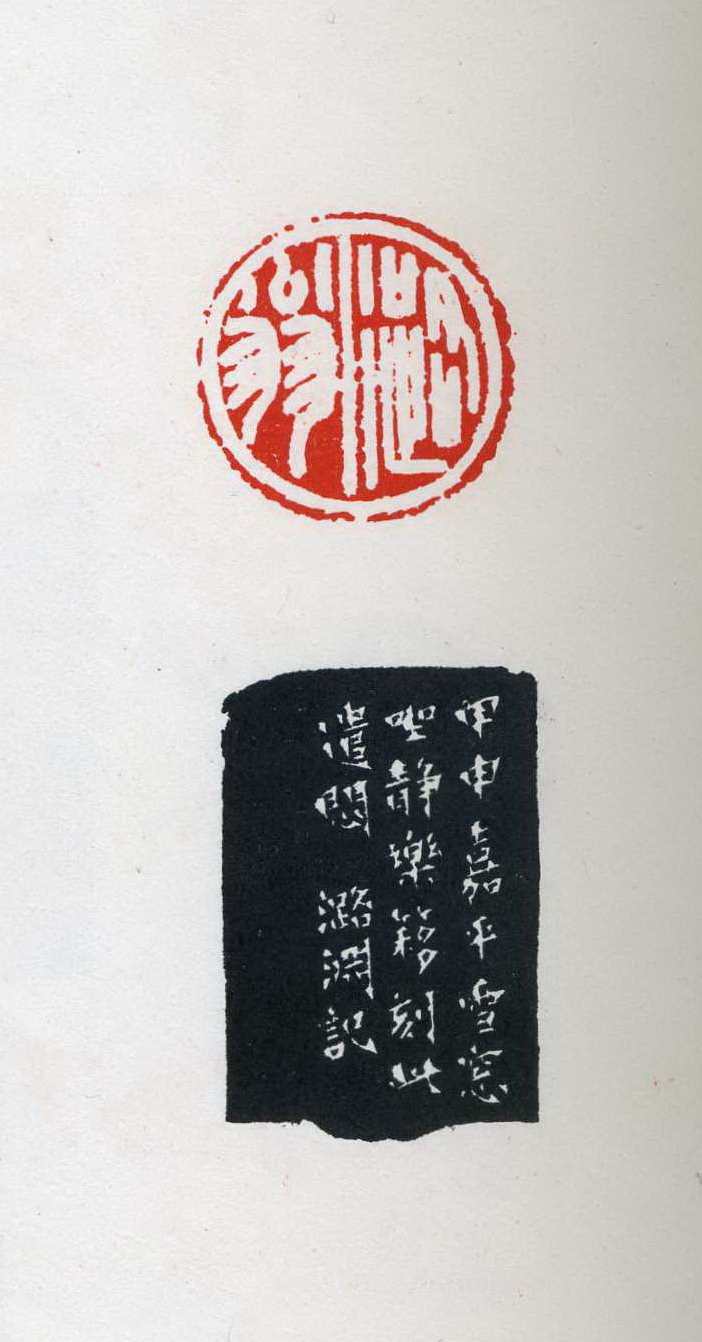 甲申嘉平雪窓
坐静樂簃刻此
遣悶 潞淵記